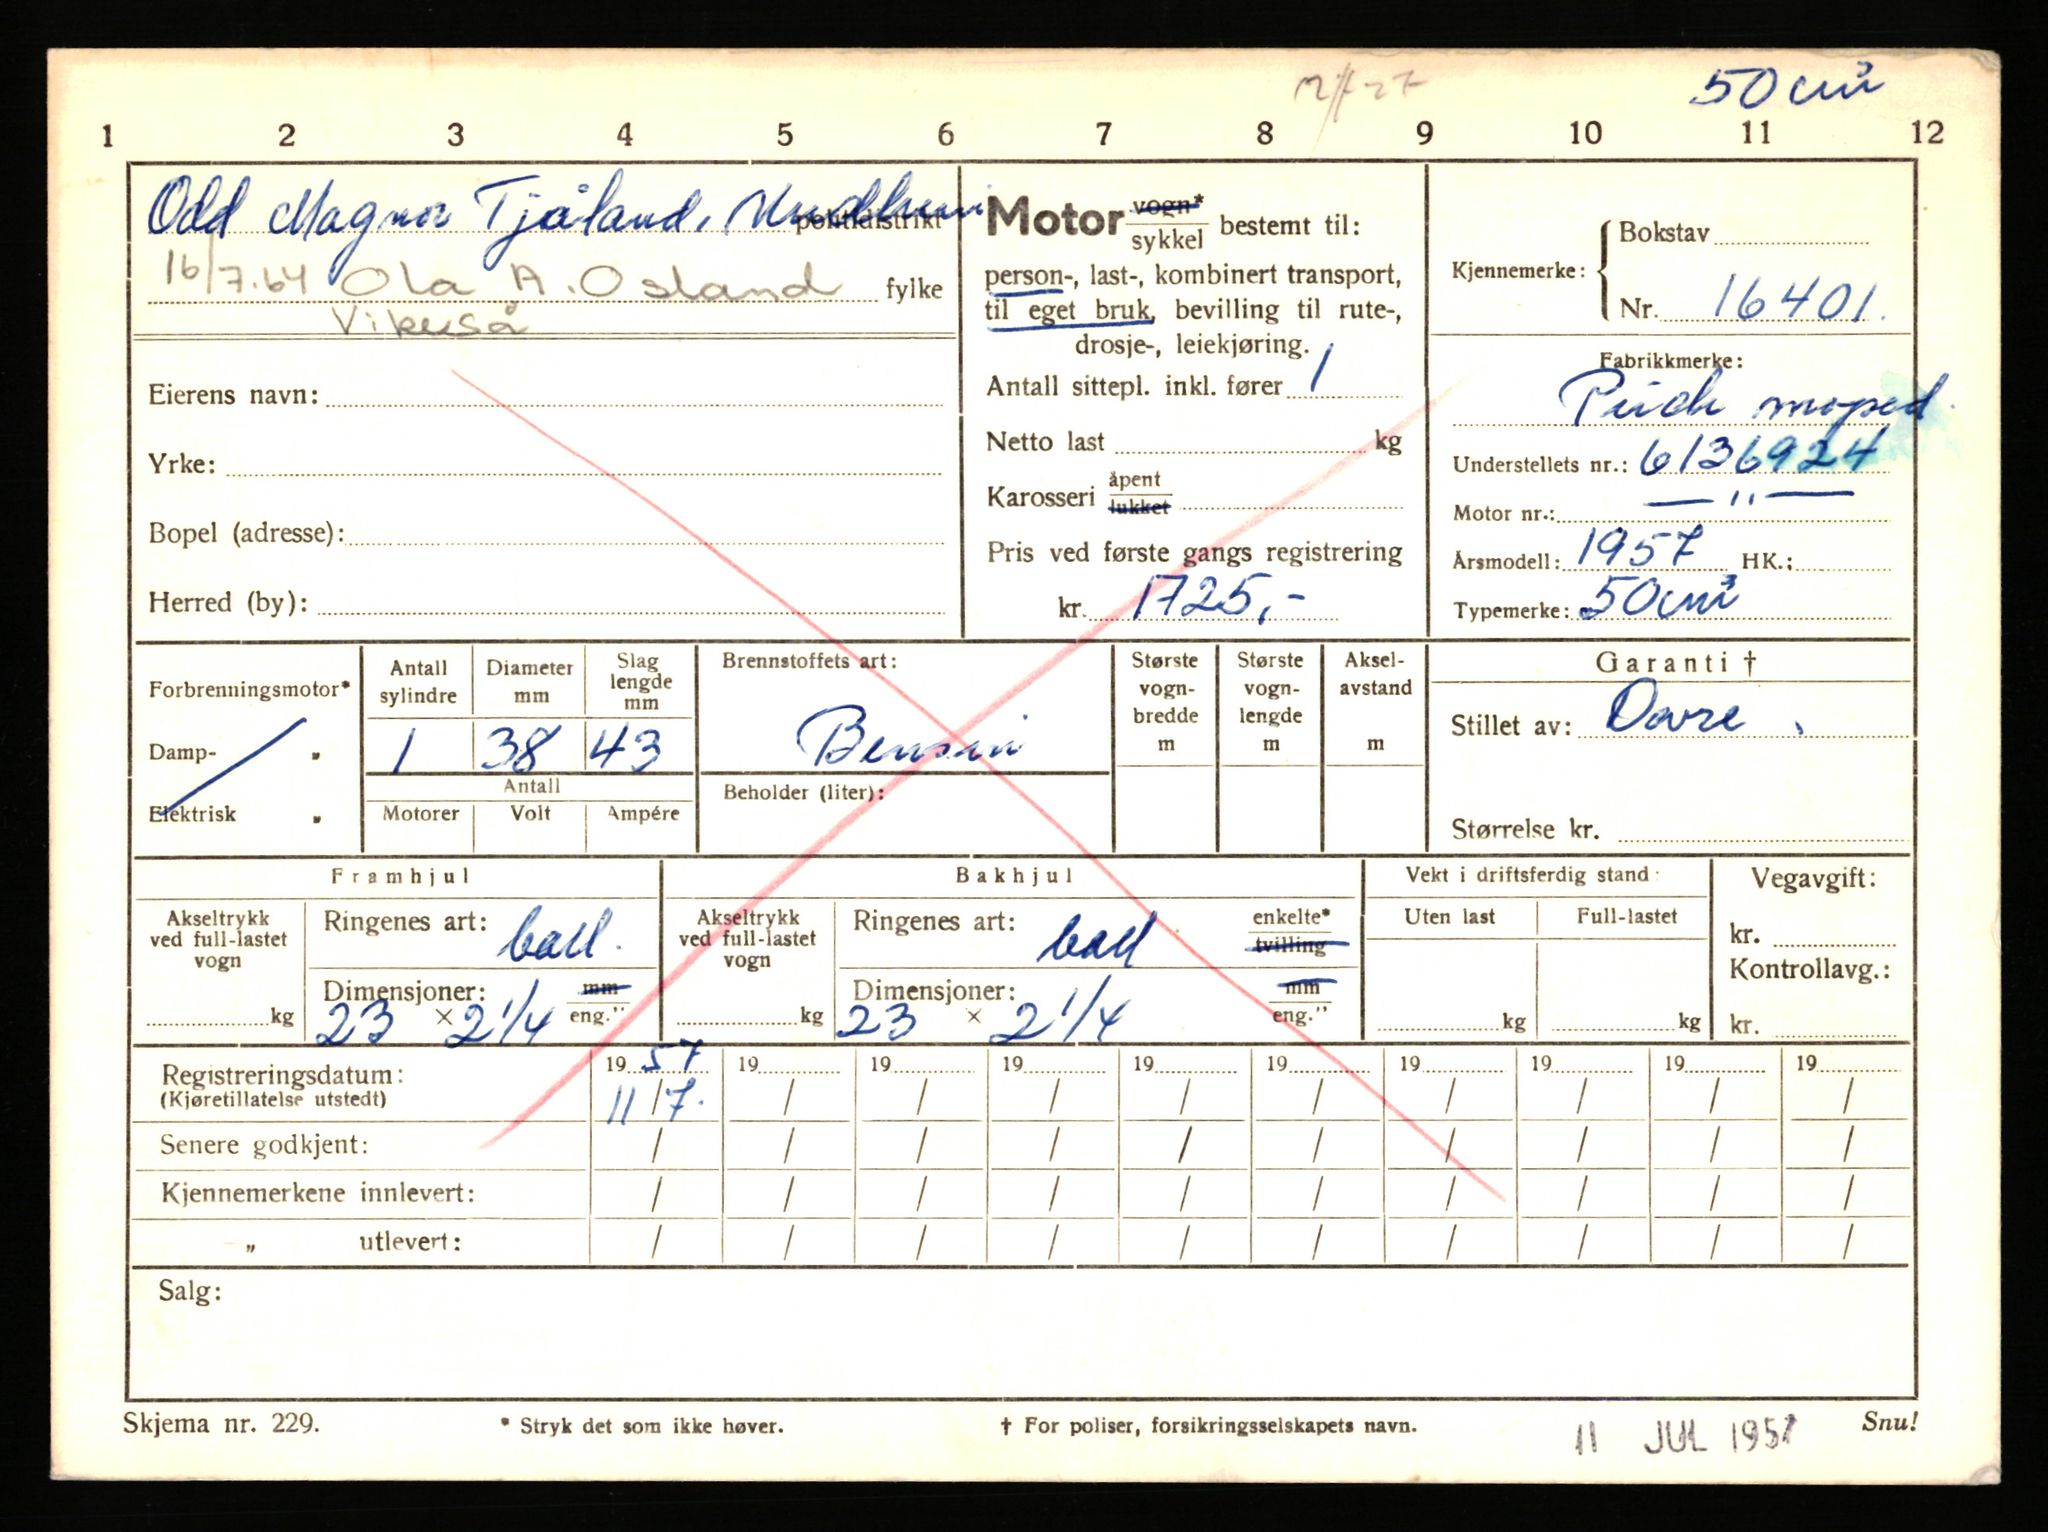 50 cm³
1 2 3 4 5 6 7 8 9 10 11 12
Odd Magnor Tjåland, Undheim politidistrikt
16/7.64 Ola A. Osland fylke
Vikeså
Eierens navn:
Yrke:
Bopel (adresse):
Herred (by):
Motor vogn* / sykkel bestemt til:
person-, last-, kombinert transport,
til eget bruk, bevilling til rute-,
drosje-, leiekjøring.
Antall sittepl. inkl. fører 1
Netto last kg
Karosseri åpent / lukket
Pris ved første gangs registrering
kr. 1725,-
Kjennemerke: Bokstav
Nr. 16401.
Fabrikkmerke:
Puch moped.
Understellets nr.: 6136924
Motor nr.: — " —
Årsmodell: 1957 HK.:
Typemerke: 50cm³
Forbrenningsmotor*
Damp- „
Elektrisk „
Antall sylindre
1
Diameter mm
38
Slag lengde mm
43
Antall
Motorer Volt Ampére
Brennstoffets art:
Bensin
Beholder (liter):
Største vogn-bredde m
Største vogn-lengde m
Aksel-avstand m
Garanti †
Stillet av: Dovre
Størrelse kr.
Framhjul
Akseltrykk ved full-lastet vogn
kg
Ringenes art: ball.
Dimensjoner: mm
23 × 2 1/4 eng."
Bakhjul
Akseltrykk ved full-lastet vogn
kg
Ringenes art: ball enkelte* / tvilling
Dimensjoner: mm
23 × 2 1/4 eng."
Vekt i driftsferdig stand:
Uten last Full-lastet
kg kg
Vegavgift:
kr.
Kontrollavg.:
kr.
Registreringsdatum: 19 57 19 19 19 19 19 19 19 19 19
(Kjøretillatelse utstedt) 11 / 7. / / / / / / / / /
Senere godkjent: / / / / / / / / / /
Kjennemerkene innlevert: / / / / / / / / / /
„ utlevert: / / / / / / / / / /
Salg:
Skjema nr. 229. * Stryk det som ikke høver. † For poliser, forsikringsselskapets navn. 11 JUL 1957 Snu!